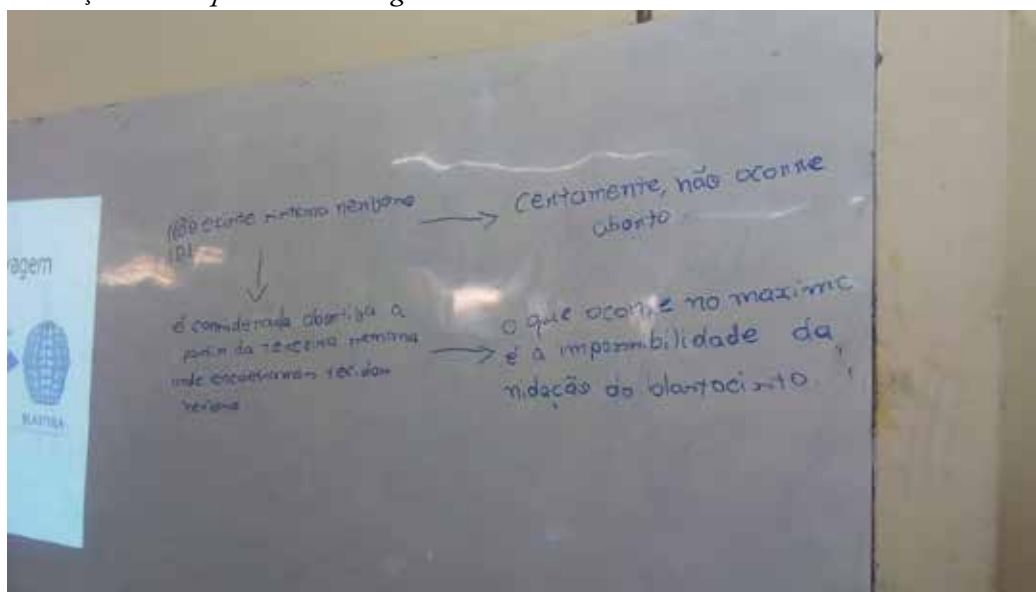 vagem
BLÁSTULA
não existe sistema nervoso
Certamente, não ocorre
aborto
é considerada abortiva a
partir da terceira semana
onde encontramos tecidos
nervoso
o que ocorre no maximo
é a impossibilidade da
nidação do blastocisto.